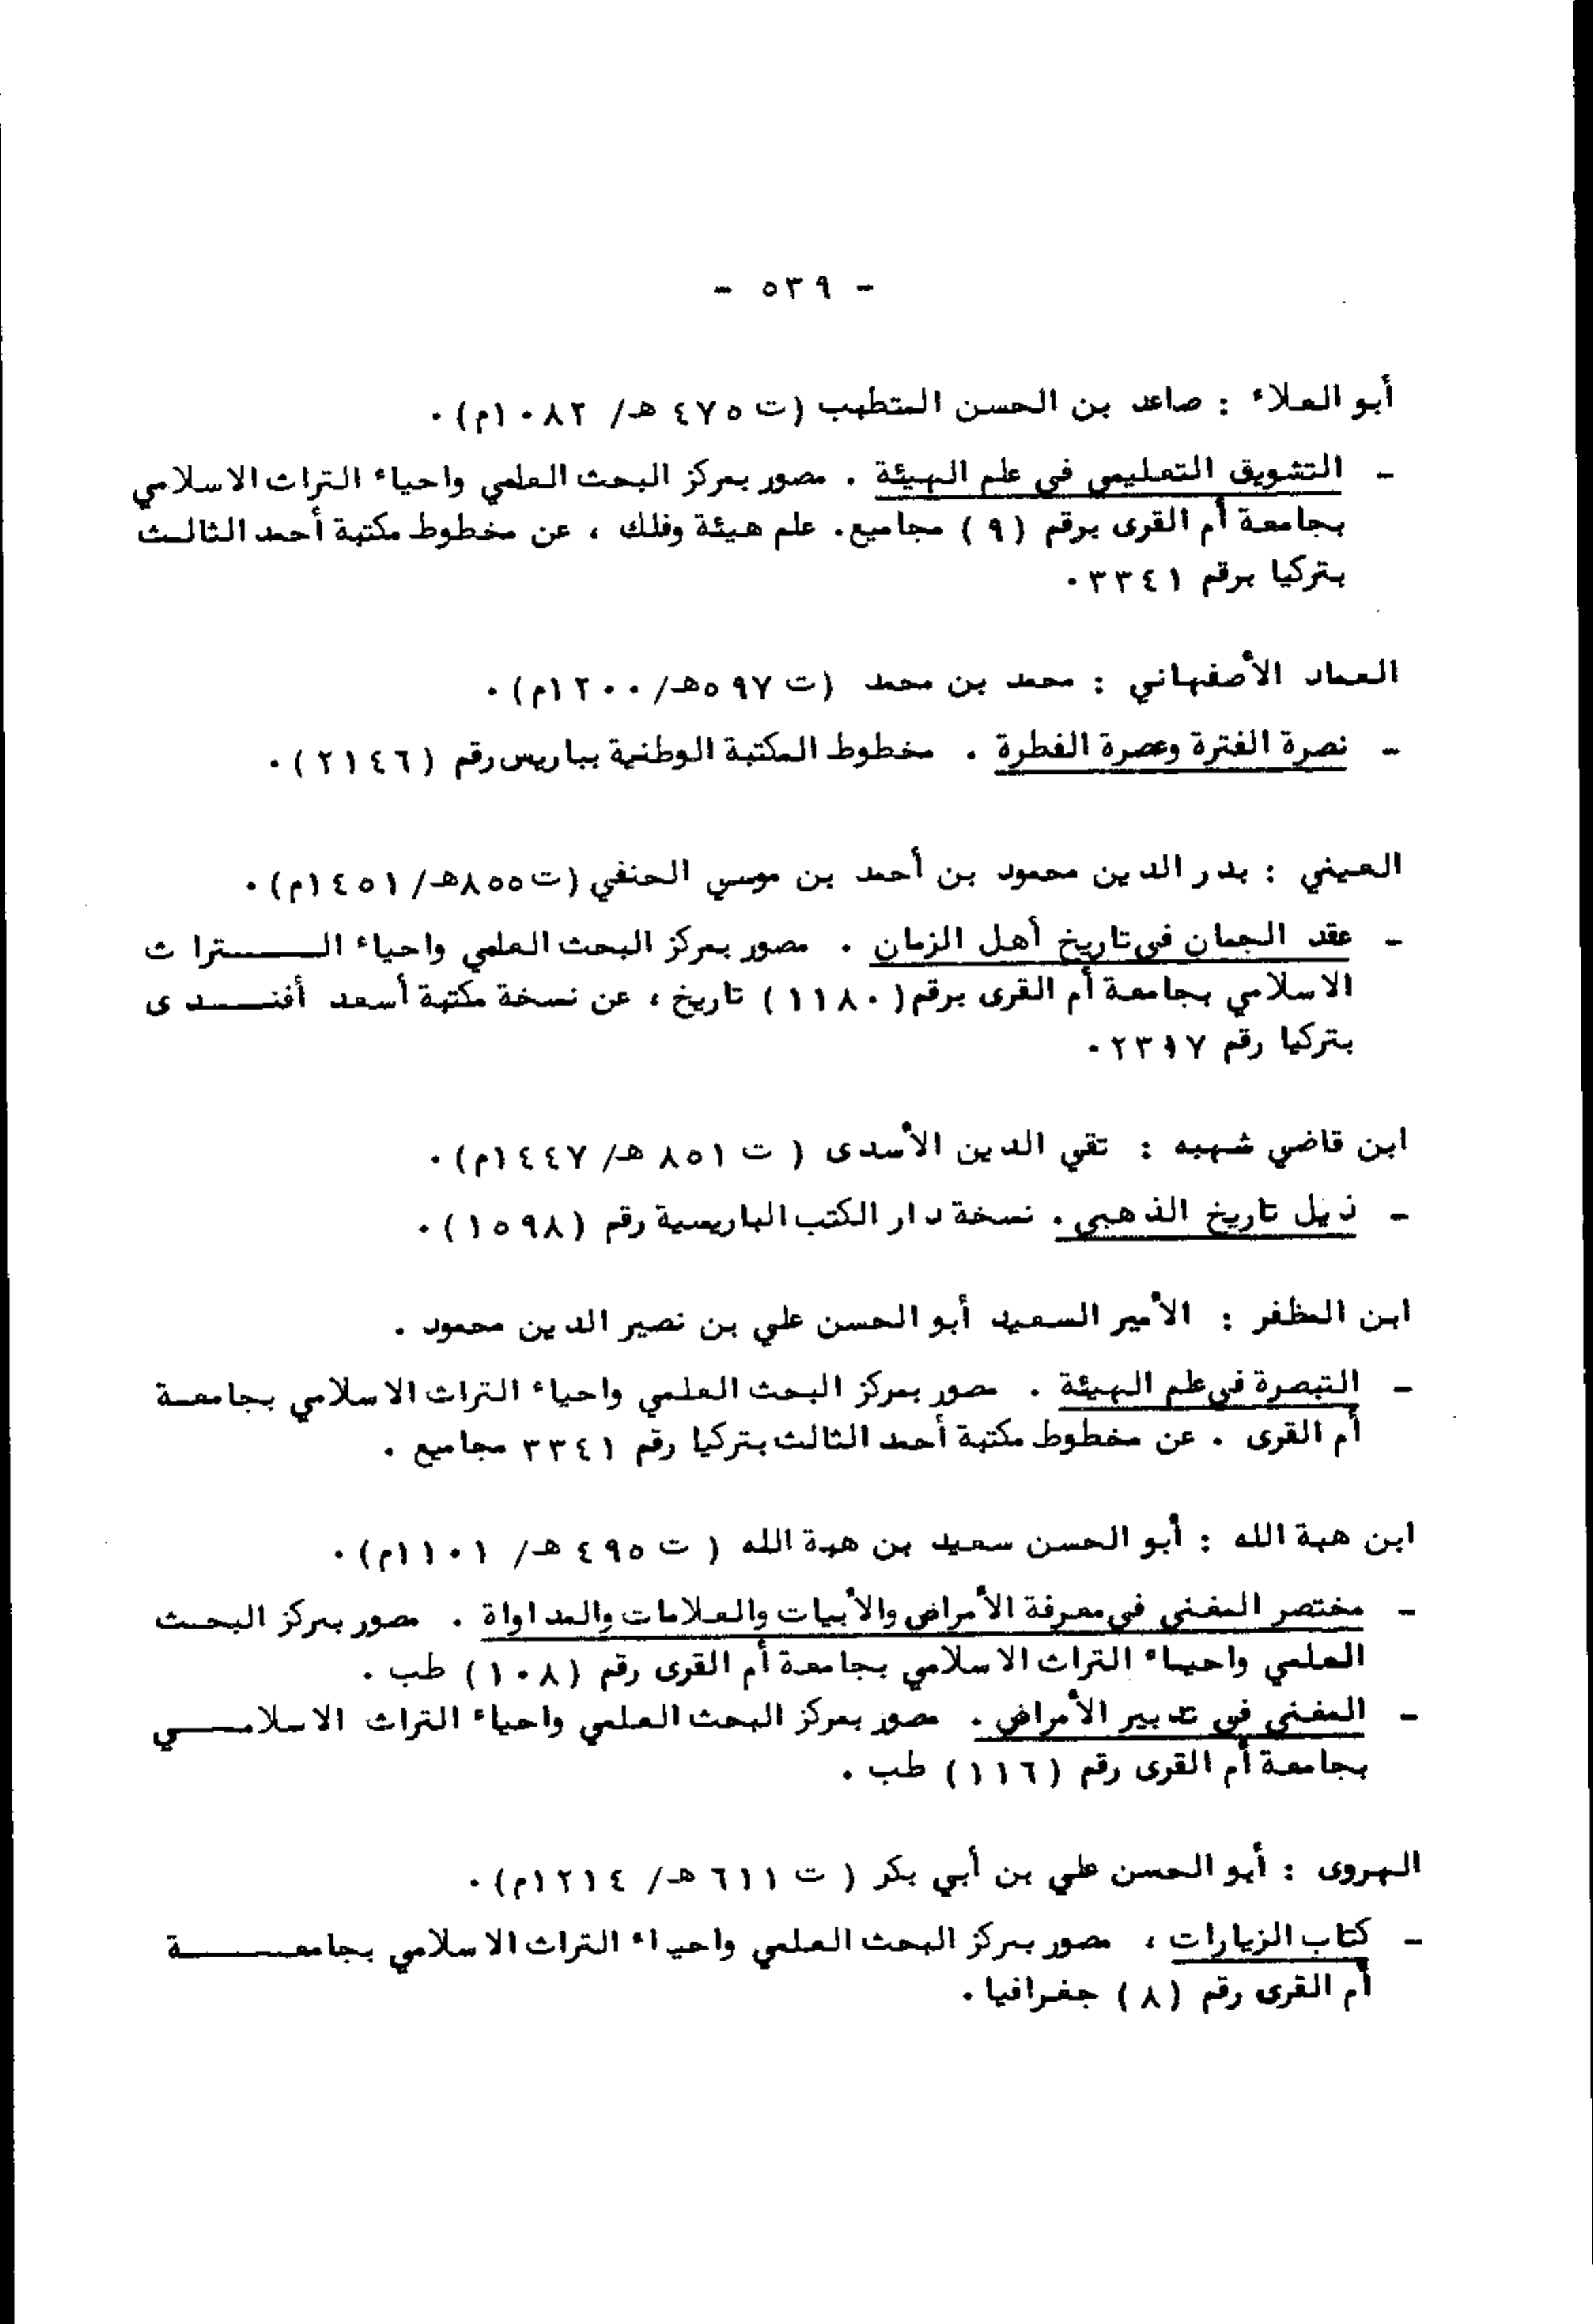 - ٥٣٩ -
أبو العلاء : صاعد بن الحسن المتطبب (ت ٤٧٥ هـ/ ١٠٨٢م)٠
- التشويق التعليمي في علم الهيئة . مصور بمركز البحث العلمي واحياء التراث الاسلامي
بجامعة أم القرى برقم (٩) مجاميع. علم هيئة وفلك ، عن مخطوط مكتبة أحمد الثالث
بتركيا برقم ٣٣٤١٠
العماد الأصفهاني : محمد بن محمد (ت ٥٩٧هـ/ ١٢٠٠م)٠
- نصرة الفترة وعصرة الفطرة . مخطوط المكتبة الوطنية بباريس رقم (٢١٤٦)٠
العيني : بدر الدين محمود بن أحمد بن موسي الحنفي (ت ٨٥٥هـ/ ١٤٥١م)٠
- عقد الجمان في تاريخ أهل الزمان . مصور بمركز البحث العلمي واحياء التراث
الاسلامي بجامعة أم القرى برقم (١١٨٠) تاريخ ، عن نسخة مكتبة أسعد أفندى
بتركيا رقم ٢٣١٧٠
ابن قاضي شهبه : تقي الدين الأسدى ( ت ٨٥١ هـ/ ١٤٤٧م)٠
- ذيل تاريخ الذهبي . نسخة دار الكتب الباريسية رقم (١٥٩٨)٠
ابن المظفر : الأمير السعيد أبو الحسن علي بن نصير الدين محمود .
- التبصرة في علم الهيئة . مصور بمركز البحث العلمي واحياء التراث الاسلامي بجامعة
أم القرى . عن مخطوط مكتبة أحمد الثالث بتركيا رقم ٣٣٤١ مجاميع .
ابن هبة الله : أبو الحسن سعيد بن هبة الله ( ت ٤٩٥ هـ/ ١١٠١م)٠
- مختصر المغني في معرفة الأمراض والأبيات والعلامات والمداواة . مصور بمركز البحث
العلمي واحياء التراث الاسلامي بجامعة أم القرى رقم (١٠٨) طب .
- المغني في تدبير الأمراض . مصور بمركز البحث العلمي واحياء التراث الاسلامي
بجامعة أم القرى رقم (١١٦) طب .
الهروى : أبو الحسن علي بن أبي بكر ( ت ٦١١ هـ/ ١٢١٤م)٠
- كتاب الزيارات ، مصور بمركز البحث العلمي واحياء التراث الاسلامي بجامعة
أم القرى رقم (٨) جغرافيا .